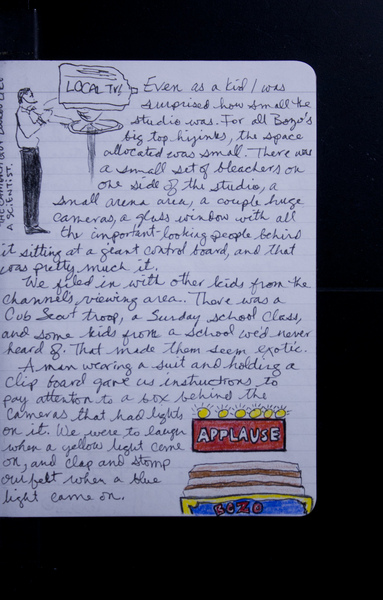 LOCAL TV!
Even as a kid I was
surprised how small the
studio was. For all Bozo's
big top hijinks, the space
allocated was small. There was
a small set of bleachers on
one side of the studio, a
small arena area, a couple huge
cameras, a glass window with all
the important-looking people behind
it sitting at a giant control board, and that
was pretty much it.
We filed in with other kids from the
channels viewing area. There was a
Cub Scout troop, a Sunday School Class,
and some kids from a school we'd never
heard of. That made them seem exotic.
A man wearing a suit and holding a
clip board gave us instructions to
pay attention to a box behind the
cameras that had lights
on it. We were to laugh
when a yellow light came
on, and clap and stomp
our feet when a blue
light came on.
APPLAUSE
BOZO
A SCIENTIST.